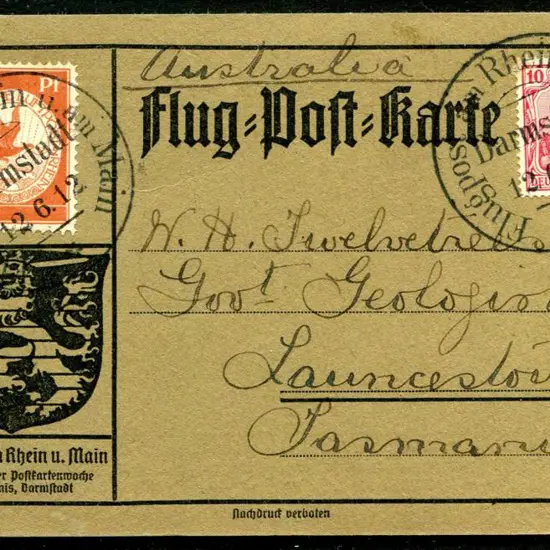 Australia
Flug=Post=Karte
Pf
in u. am Main
mstadt
12.6.12
am Rhein
Darms
12.
Flugpos
10
DEU
W. H. Twelvetrees
Govt Geologis
Launcesto
Tasman
Rhein u. Main
er Postkartenwoche
ais, Darmstadt
Nachdruck verboten